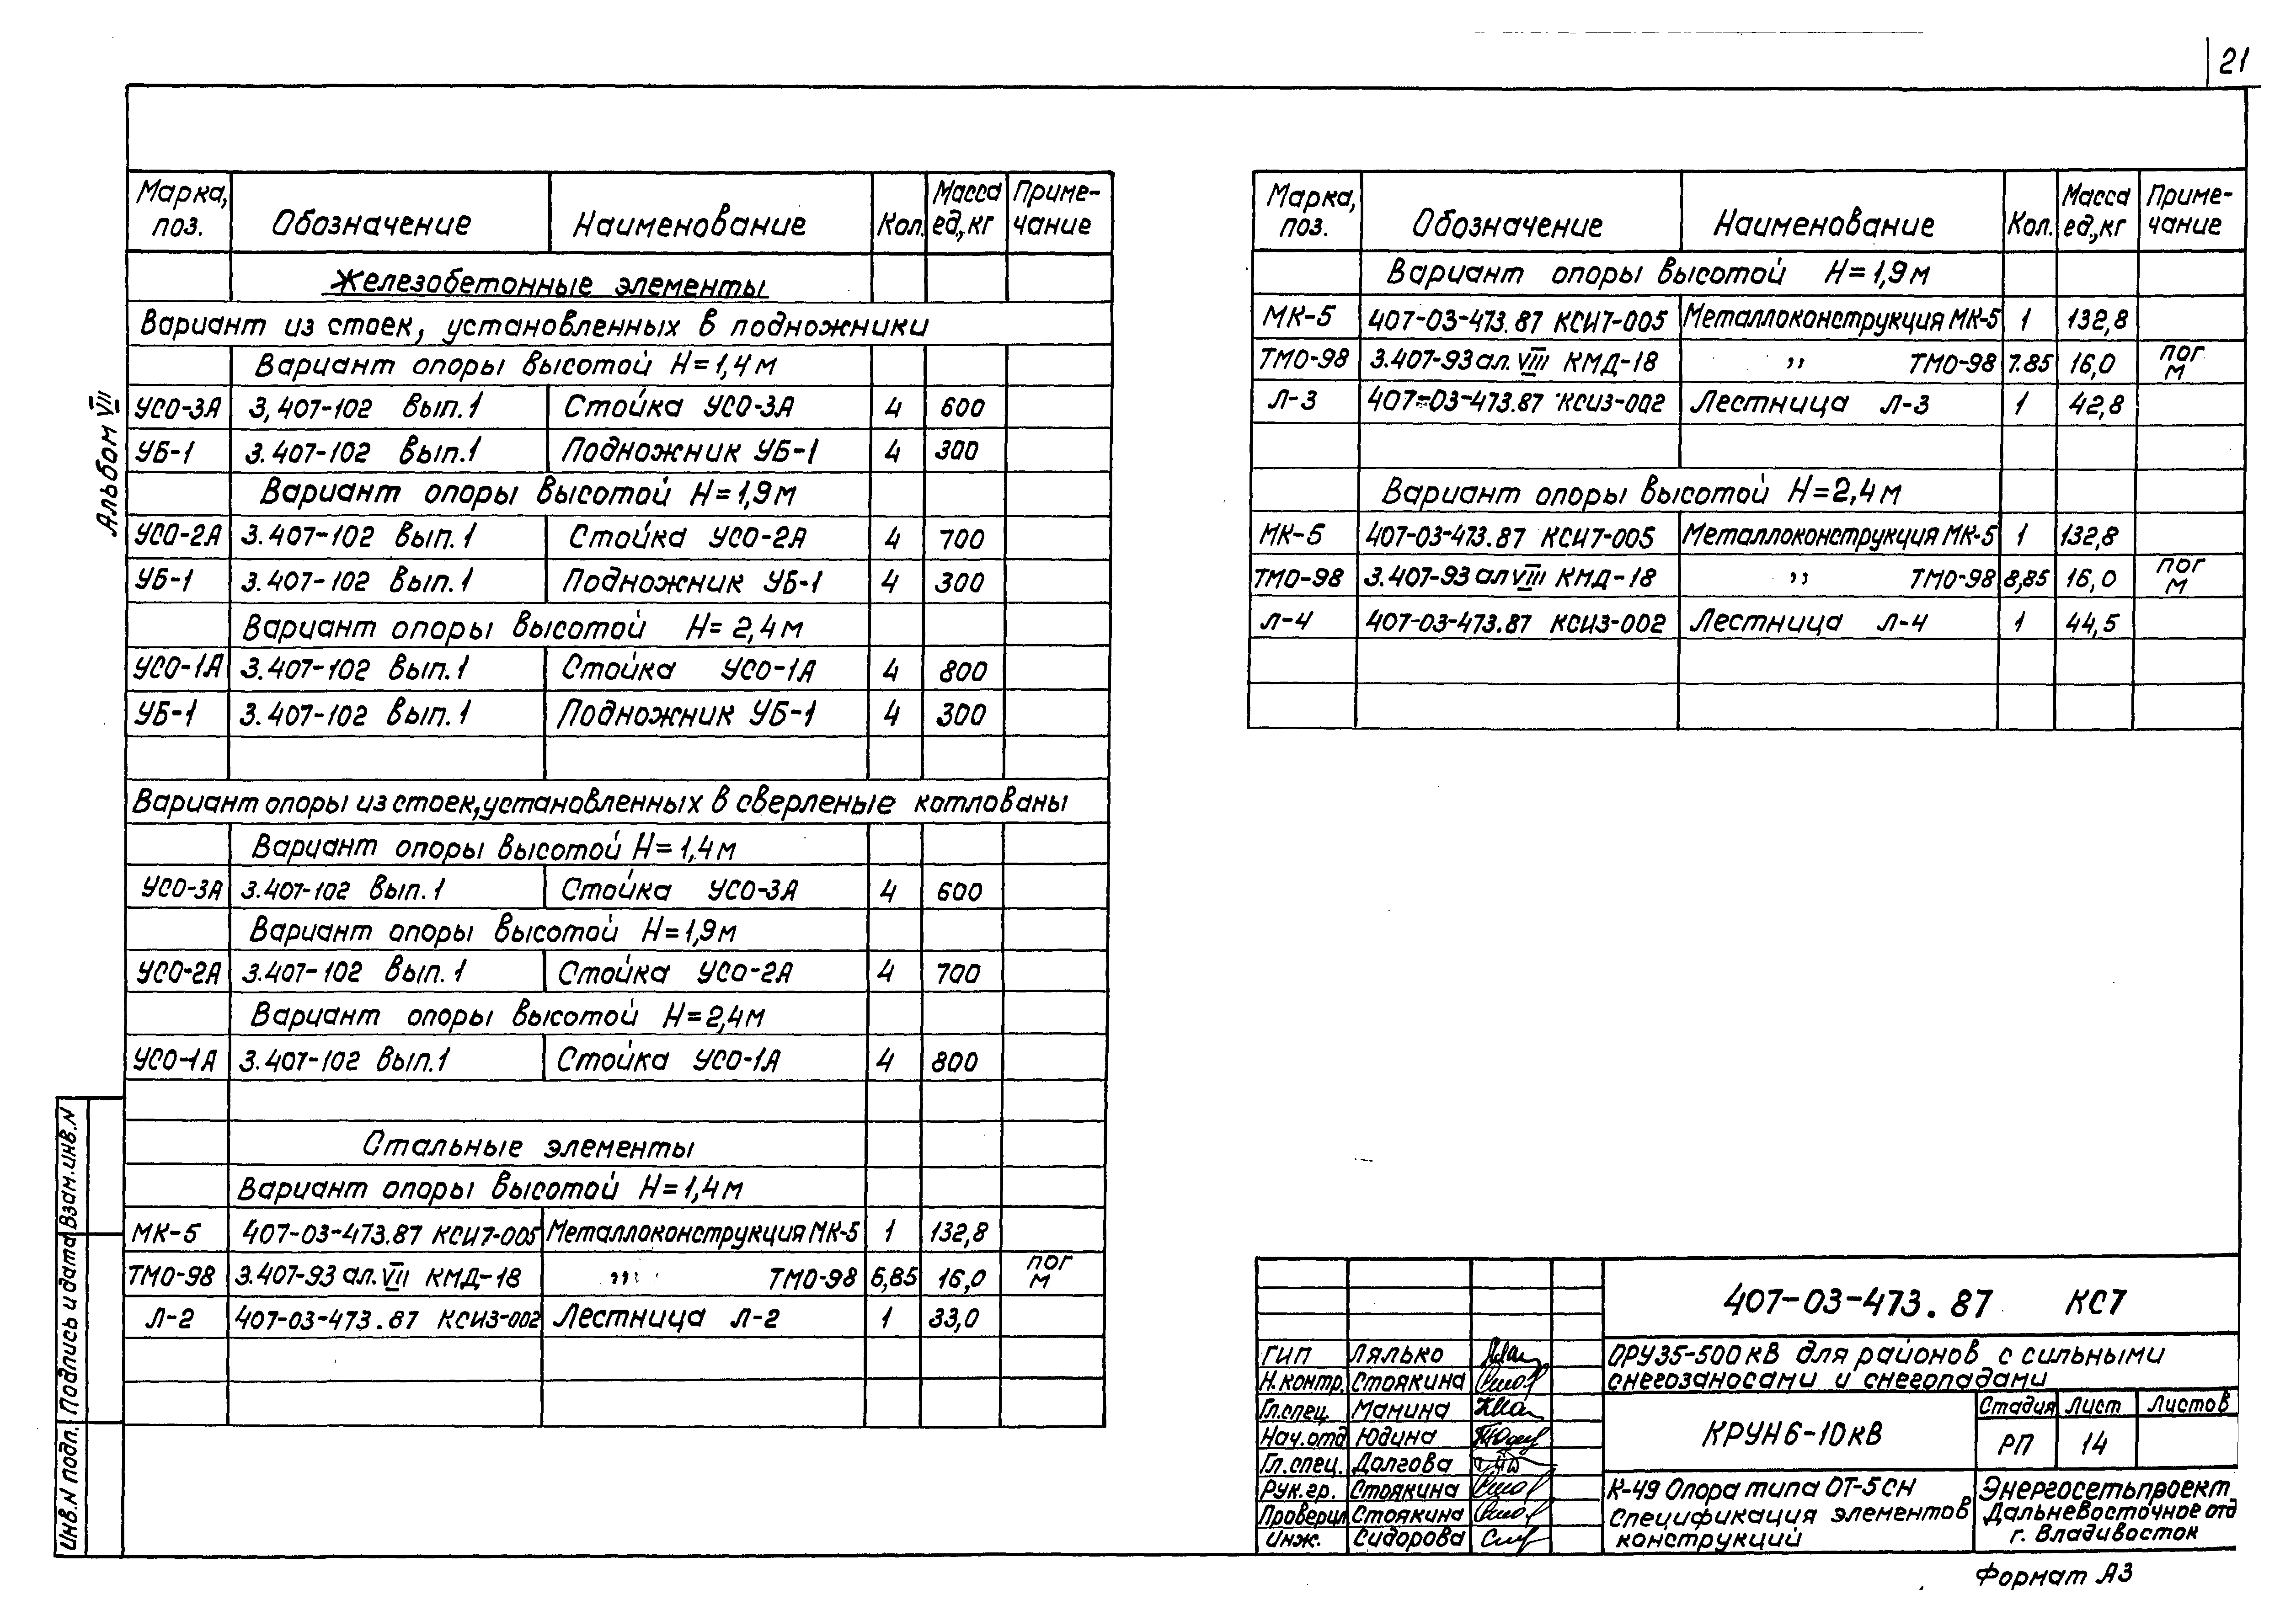 21
Альбом VII
Марка, поз. Обозначение Наименование Кол. Масса ед., кг Приме-чание
Железобетонные элементы
Вариант из стоек, установленных в подножники
Вариант опоры высотой H=1,4м
УСО-3А 3,407-102 Вып.1 Стойка УСО-3А 4 600
УБ-1 3.407-102 Вып.1 Подножник УБ-1 4 300
Вариант опоры высотой H=1,9м
УСО-2А 3.407-102 Вып.1 Стойка УСО-2А 4 700
УБ-1 3.407-102 Вып.1 Подножник УБ-1 4 300
Вариант опоры высотой H=2,4м
УСО-1А 3.407-102 Вып.1 Стойка УСО-1А 4 800
УБ-1 3.407-102 Вып.1 Подножник УБ-1 4 300
Вариант опоры из стоек, установленных в сверленые котлованы
Вариант опоры высотой H=1,4м
УСО-3А 3.407-102 Вып.1 Стойка УСО-3А 4 600
Вариант опоры высотой H=1,9м
УСО-2А 3.407-102 Вып.1 Стойка УСО-2А 4 700
Вариант опоры высотой H=2,4м
УСО-1А 3.407-102 Вып.1 Стойка УСО-1А 4 800
Стальные элементы
Вариант опоры высотой H=1,4м
МК-5 407-03-473.87 КСИ7-005 Металлоконструкция МК-5 1 132,8
ТМО-98 3.407-93 ал. VIII КМД-18 ,, ТМО-98 6,85 16,0 пог м
Л-2 407-03-473.87 КСИ3-002 Лестница Л-2 1 33,0
Марка, поз. Обозначение Наименование Кол. Масса ед., кг Приме-чание
Вариант опоры высотой H=1,9м
МК-5 407-03-473.87 КСИ7-005 Металлоконструкция МК-5 1 132,8
ТМО-98 3.407-93 ал. VIII КМД-18 ,, ТМО-98 7.85 16,0 пог м
Л-3 407-03-473.87 КСИ3-002 Лестница Л-3 1 42,8
Вариант опоры высотой H=2,4м
МК-5 407-03-473.87 КСИ7-005 Металлоконструкция МК-5 1 132,8
ТМО-98 3.407-93 ал VIII КМД-18 ,, ТМО-98 8,85 16,0 пог м
Л-4 407-03-473.87 КСИ3-002 Лестница Л-4 1 44,5
Взам.инв.N
Подпись и дата
Инв.N подл.
407-03-473.87 КС7
ОРУ35-500кВ для районов с сильными
снегозаносами и снегопадами
ГИП Лялько
Н.контр. Стоякина
Гл.спец. Мамина
Нач.отд Юдина
Гл.спец. Долгова
Рук.гр. Стоякина
Проверил Стоякина
Инж. Сидорова
КРУН6-10кВ
Стадия Лист Листов
РП 14
К-49 Опора типа ОТ-5СН
Спецификация элементов
конструкций
Энергосетьпроект
Дальневосточное отд
г. Владивосток
Формат А3